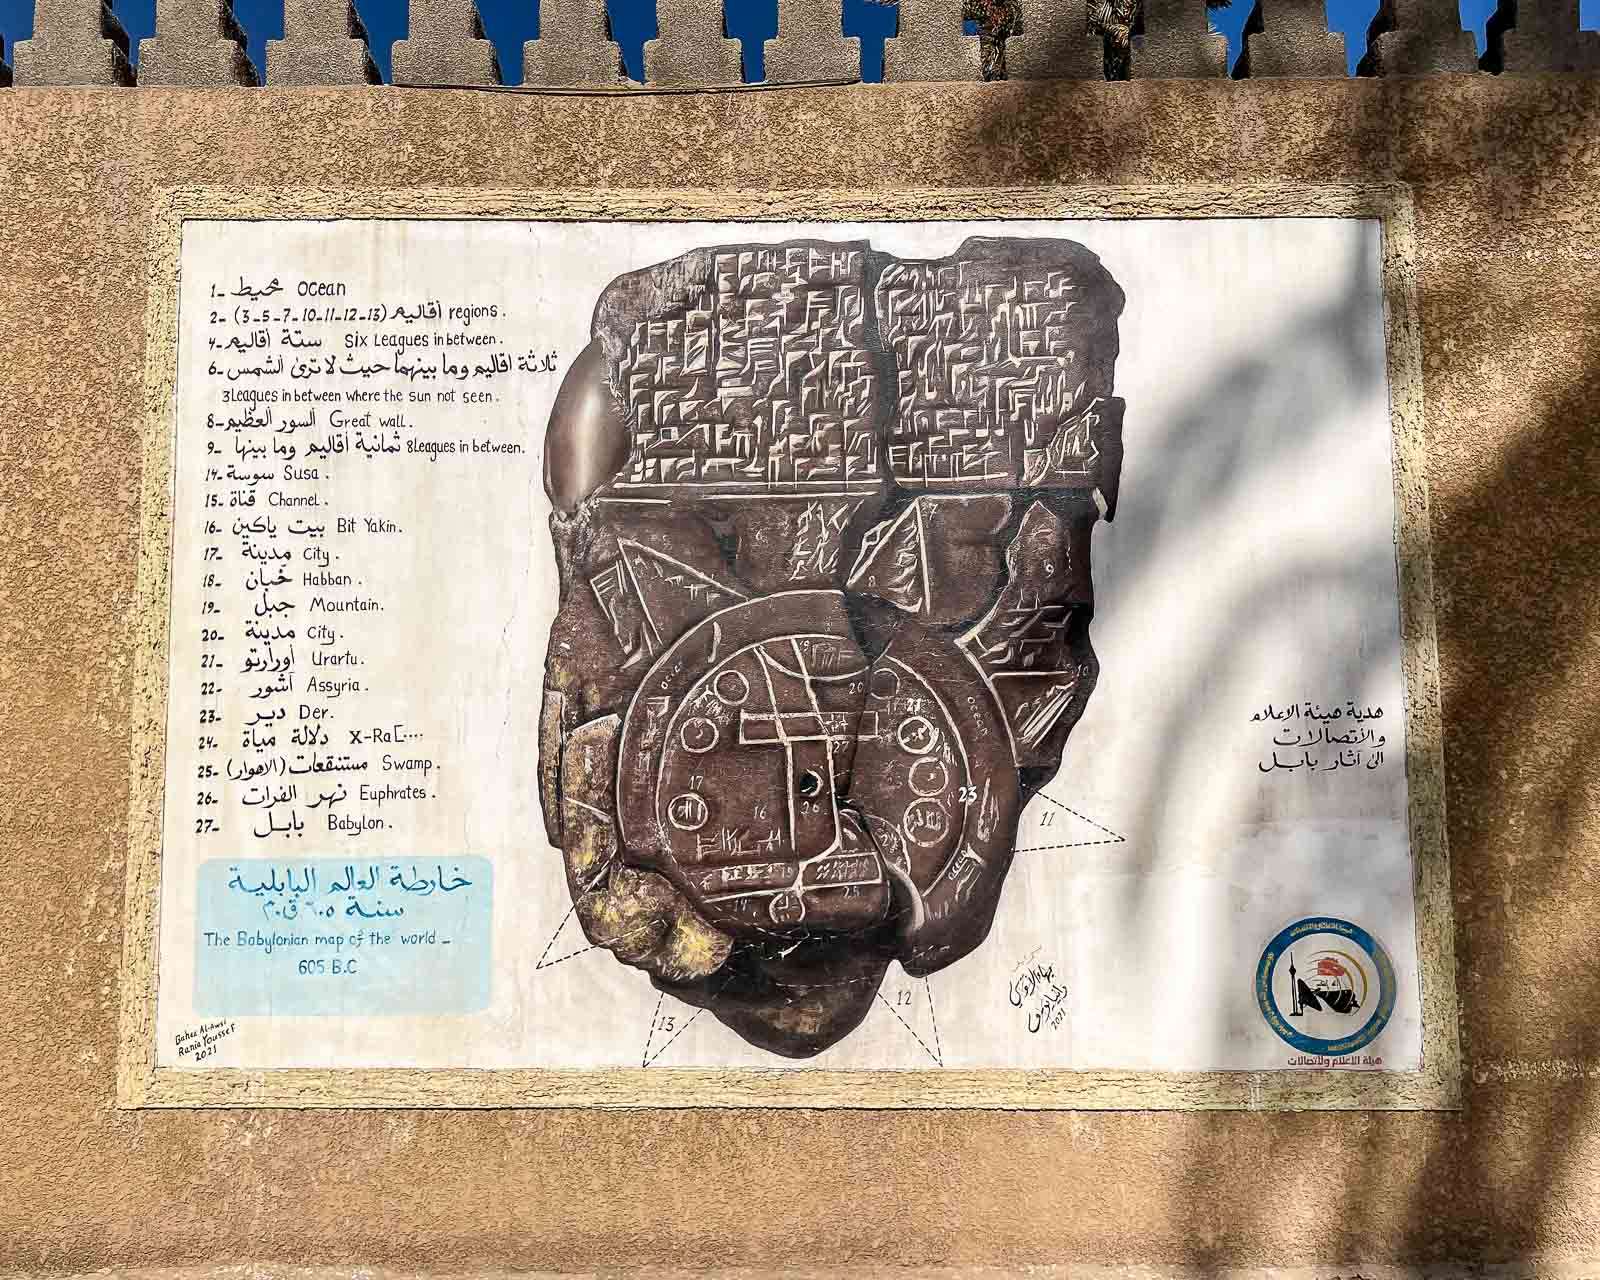 1- محيط ocean
2- (3-5-7-10-11-12-13) أقاليم regions.
4- ستة أقاليم Six Leagues in between.
6- ثلاثة اقاليم وما بينهما حيث لا ترى الشمس
3 Leagues in between where the sun not seen.
8- السور العظيم Great wall.
9- ثمانية أقاليم وما بينها 8 Leagues in between.
14- سوسة Susa.
15- قناة Channel.
16- بيت ياكين Bit Yakin.
17- مدينة City.
18- خبان Habban.
19- جبل Mountain.
20- مدينة City.
21- أورارتو Urartu.
22- آشور Assyria.
23- دير Der.
24- دلالة مياة X-Ra[....
25- مستنقعات (الاهوار) Swamp.
26- نهر الفرات Euphrates.
27- بابل Babylon.
خارطة العالم البابلية
سنة ٦٠٥ ق.م
The Babylonian map of the world -
605 B.C
Rania Youssef
2021
7
8
9
10
ocean
19
20
21
27
17
16
26
23
11
ocean
25
14
12
13
2021
هدية هيئة الاعلام
والأتصالات
الى آثار بابل
هيئة الاعلام ولاتصالات